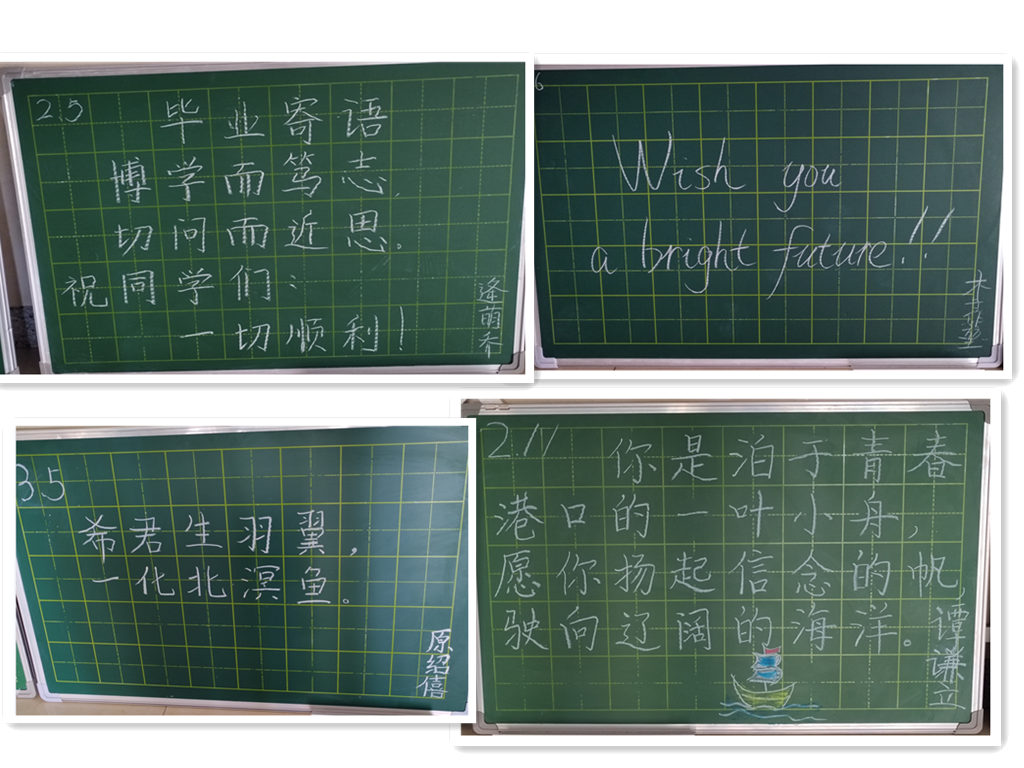 2.5
毕业寄语
博学而笃志,
切问而近思。
祝同学们:
一切顺利!
逄萌乔
6
Wish you
a bright future!!
3.5
希君生羽翼,
一化北溟鱼。
原绍僖
2.11
你是泊于青春
港口的一叶小舟,
愿你扬起信念的帆,
驶向辽阔的海洋。
谭谦立